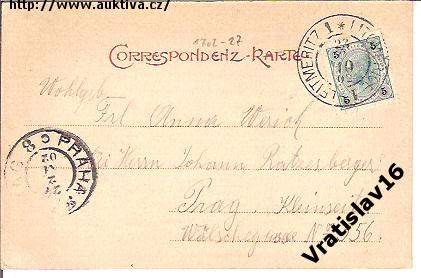 http://www.auktiva.cz/
1702-27
CORRESPONDENZ-KARTE
LEITMERITZ 1 *
5 5
Wohlgeb.
Frl. Anna
bei Herrn Johann
Prag. Kleinseite
Wälschegasse N
PRAHA
8
Vratislav16